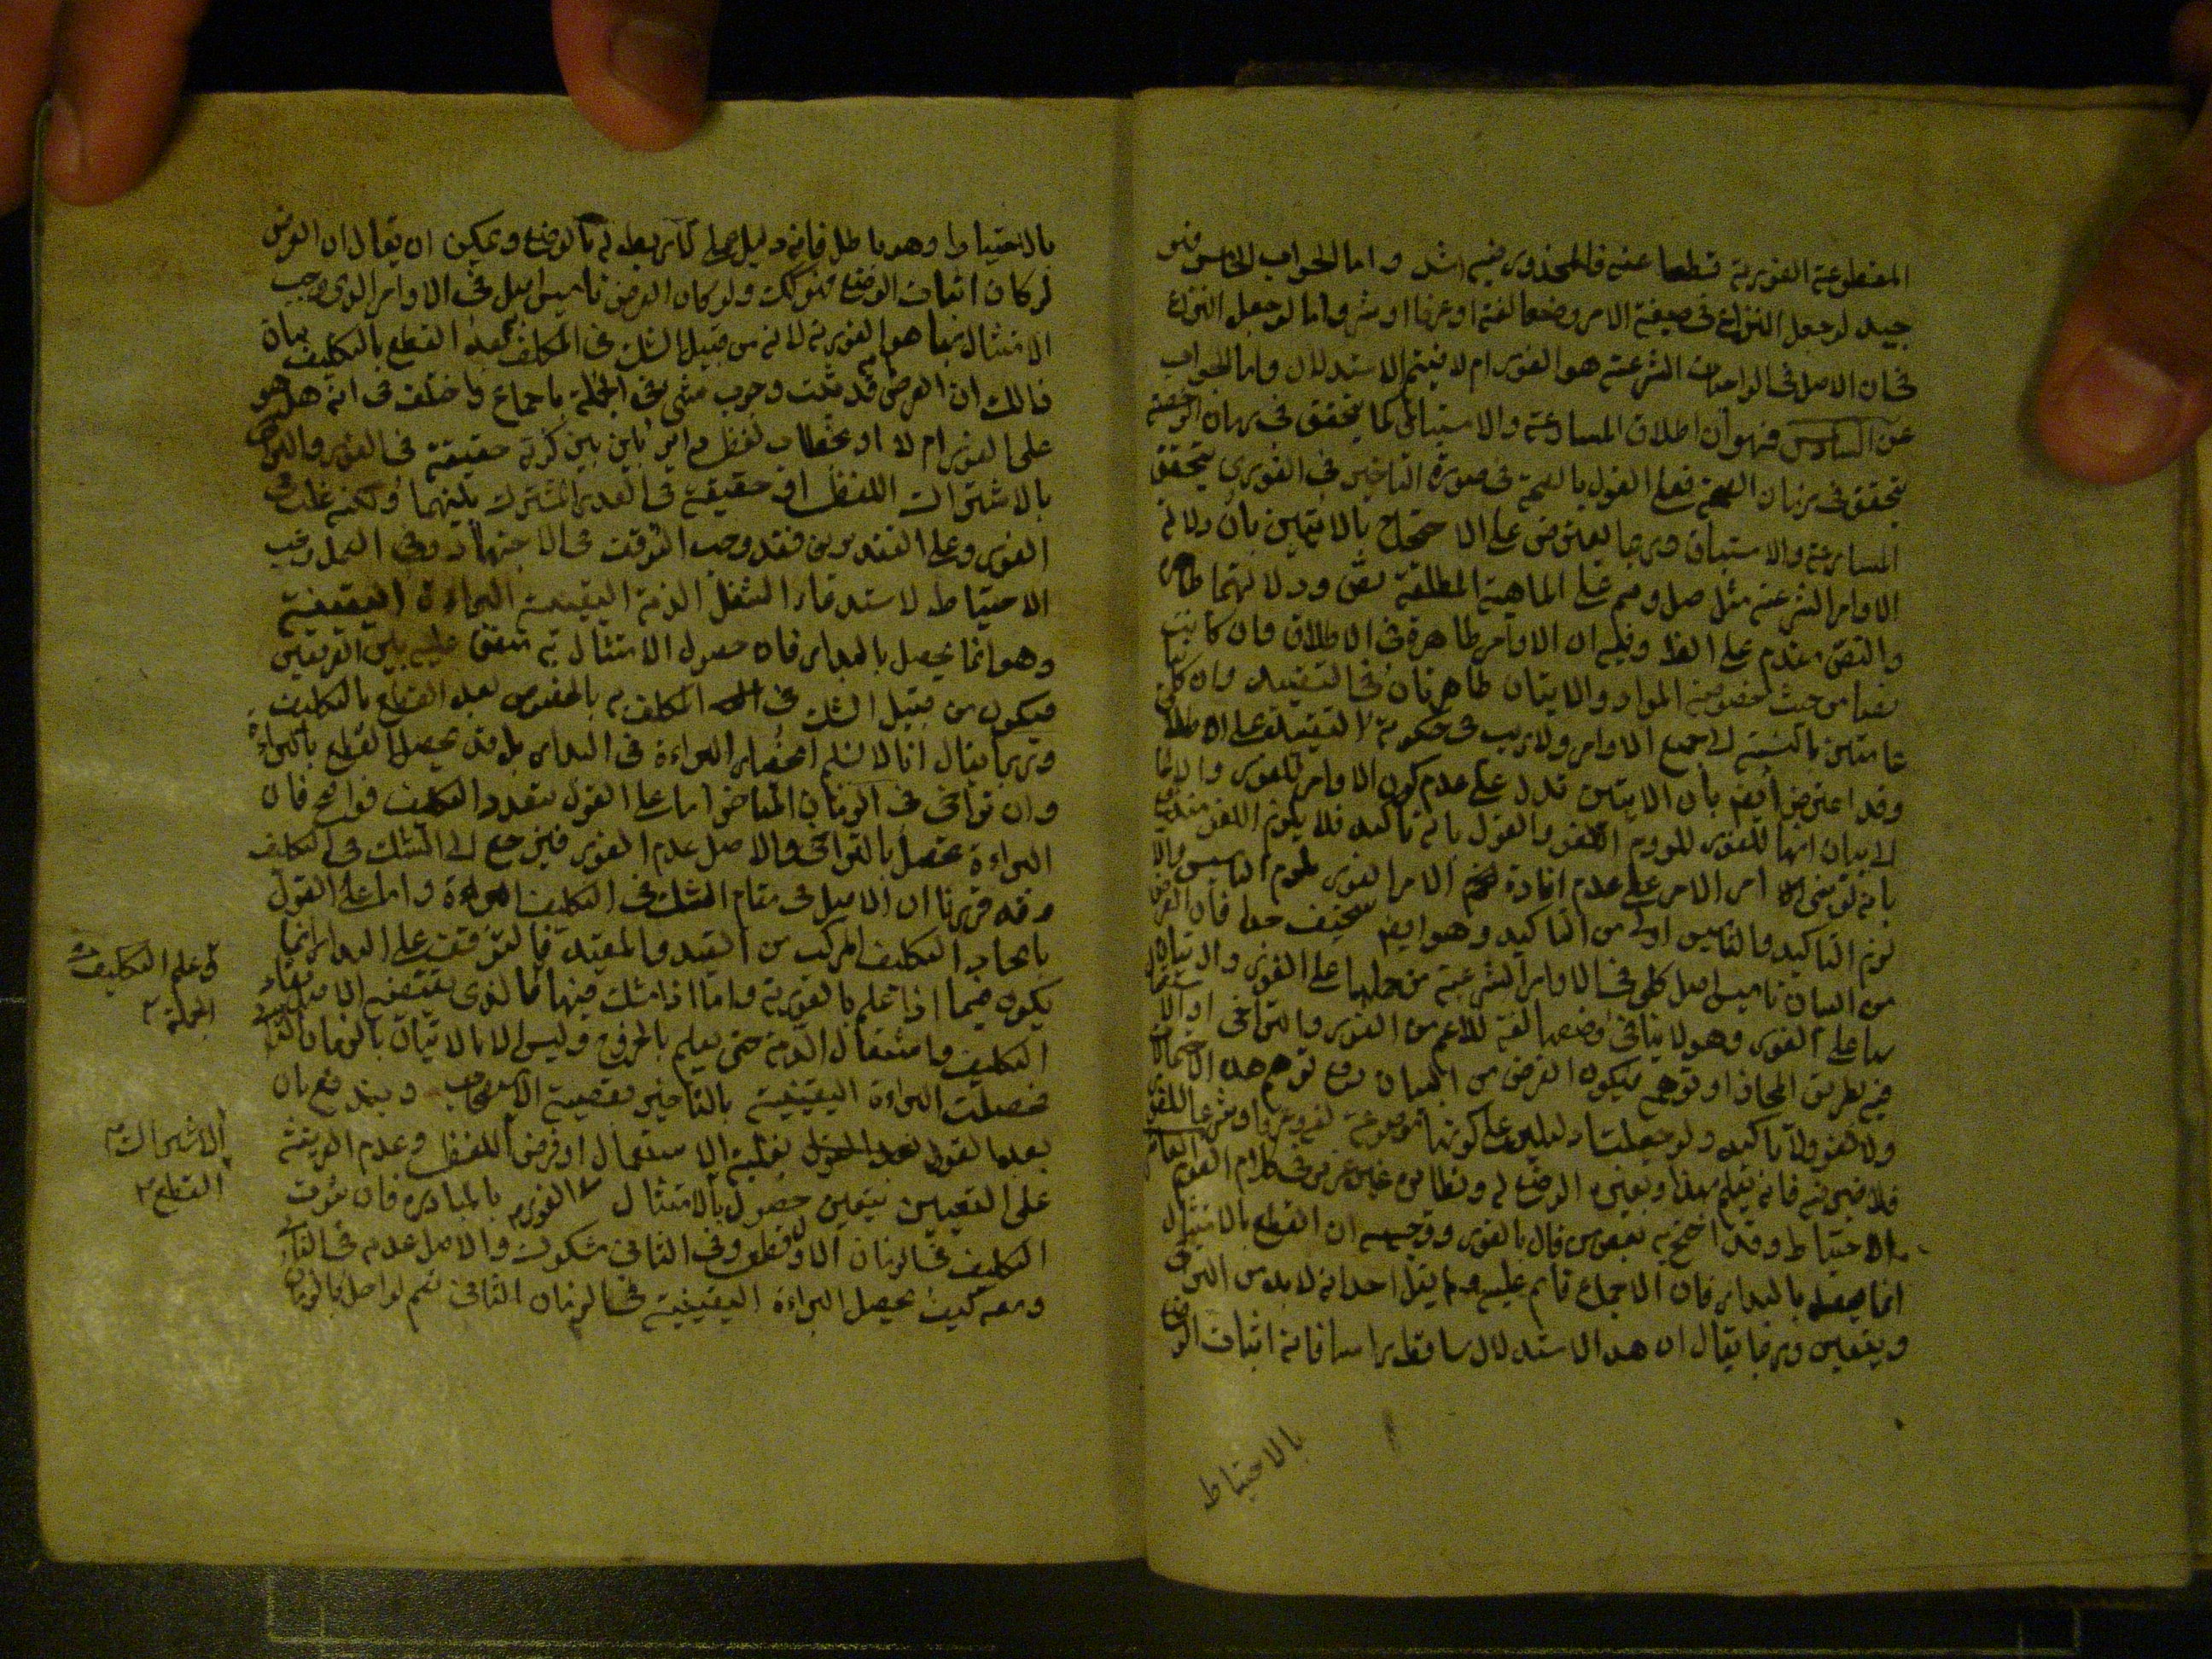 المقطوعة الفورية قطعا عنه فالمحذور فيه اشد واما الجواب الخامس فهو
جيد لو جعل النزاع في صيغة الامر وضعا لغة او عرفا او شرعا واما لو جعل النزاع
في ان الاصل في الواجبات الشرعية هو الفور ام لا فيتم الاستدلال واما الجواب
عن السادس فهو ان اطلاق المسارعة والاستباق كما يتحقق في زمان الرخصة
يتحقق في زمان الصحة فعلى القول بالصحة في صورة التاخير في الفوري يتحقق
المسارعة والاستباق وربما يعترض على الاحتجاج بالآيتين بان دلالة
الاوامر الشرعية مثل صل وصم على الماهية المطلقة نص ودلالتهما ظاهر
والنص مقدم على الظ وفيه ان الاوامر ظاهرة في الاطلاق وان كانت
نصا من حيث خصوصية المواد والآيتان ظاهرتان في التقييد وان كانتا
عامتين بالنسبة الى جميع الاوامر ولا ريب في حكومة التقييد على الاطلاق
وقد اعترض ايضا بان الآيتين تدل على عدم كون الاوامر للفور والا لما
لا بيان انها للفور للزوم اللغو والقول بانه تاكيد فلا يلزم اللغو مندفع
بانه لو بنى الامر على عدم افادة الامر الفور لزم التاسيس والا
لزم التاكيد والتاسيس اولى من التاكيد وهو ايضا سخيف جدا فان الغرض
من البيان تاسيس اصل كلي في الاوامر الشرعية من حملها على الفور والاتيان
بها على الفور وهو لا ينافي وضعها لغة للاعم من الفور والتراخي او استعمالها
فيه بطريق المجاز او توهمه فيكون الغرض من البيان رفع توهم هذه الاحتمالات
ولا لغو ولا تاكيد ولو جعلتا دليلين على كونها موضوعة لغة وعرفا وشرعا للفور
فلا ضير فيه فانه يعلم بهذا وبغيره الوضع له ونظائره غير عزيز في كلام القوم العاشر
الاحتياط وقد احتج به بعض من قال بالفور وتوجيهه ان القطع بالامتثال
انما يحصل بالبدار فان الاجماع قائم عليه ولم يقل احد انه لا بد من التراخي
ويتعين وربما يقال ان هذا الاستدلال ساقط راسا فانه اثبات الوضع
بالاحتياط
بالاحتياط وهو باطل فانه دليل عملي لا ربط له بالوضع ويمكن ان يقال ان الغرض
لو كان اثبات الوضع فهو كك ولو كان الغرض تاسيس اصل في الاوامر الذي وجب
الامتثال بها هو الفورية لانه من قبيل الشك في المكلف به بعد القطع بالتكليف بيان
ذالك ان الفرض قد ثبت وجوب شيء في الجملة باجماع واختلف في انه هل هو
على الفور ام لا او بخطاب لفظ دائر بين كونه حقيقة في الفور والتراخي
بالاشتراك اللفظي او حقيقة في القدر المشترك بينهما ولكنه غلب في
الفور وعلى التقديرين فقد وجب التوقف في الاجتهاد وفي العمل وجب
الاحتياط لاستدعاء الشغل الذمة اليقينية البراءة اليقينية
وهو انما يحصل بالبدار فان حصول الامتثال به متفق عليه بين الفريقين
فيكون من قبيل الشك في المكلف به بالخصوص بعد القطع بالتكليف
وربما يقال انا لا نسلم انحصار البراءة في البدار بل قد يحصل القطع بالبراءة
وان تراخى في الزمان المتاخر اما على القول بتعدد التكليف فواضح فان
البراءة تحصل بالتراخي والاصل عدم الفور فيرجع الى الشك في التكليف
وقد قررنا ان الاصل في مقام الشك في التكليف البراءة واما على القول
باتحاد التكليف المركب من القيد والمقيد فالتوقف على البدار انما
يكون فيما اذا علم بالفورية واما اذا شك فيها فالذي يقتضيه الاصل بقاء
التكليف واشتغال الذمة حتى يعلم بالخروج وليس الا بالاتيان بالزمان الثاني
فحصلت البراءة اليقينية بالتاخير بقضية الاستصحاب ويندفع بان
بعد القول بغلبة الاستعمال او فرض اللفظ وعدم القرينة
على التعيين يتعين حصول الامتثال الفوري بالمبادرة فان ثبوت
التكليف في الزمان الاول قطعي وفي الثاني مشكوك والاصل عدمه في الثاني
ومعه كيف يحصل البراءة اليقينية في الزمان الثاني نعم لو اخل بالزمان
وعلم التكليف في
الجملة
الاشتراك
القطع